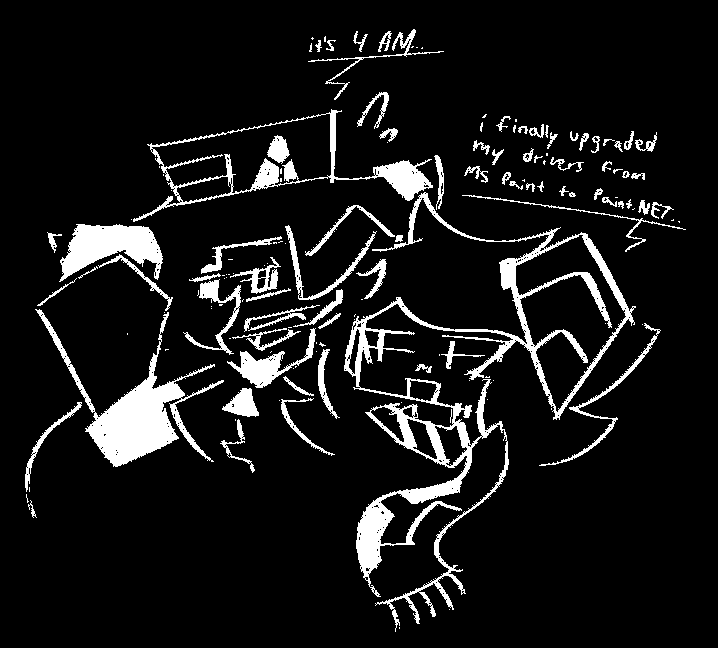 it's 4 AM...
i finally upgraded
my drivers from
MS Paint to Paint.NET...